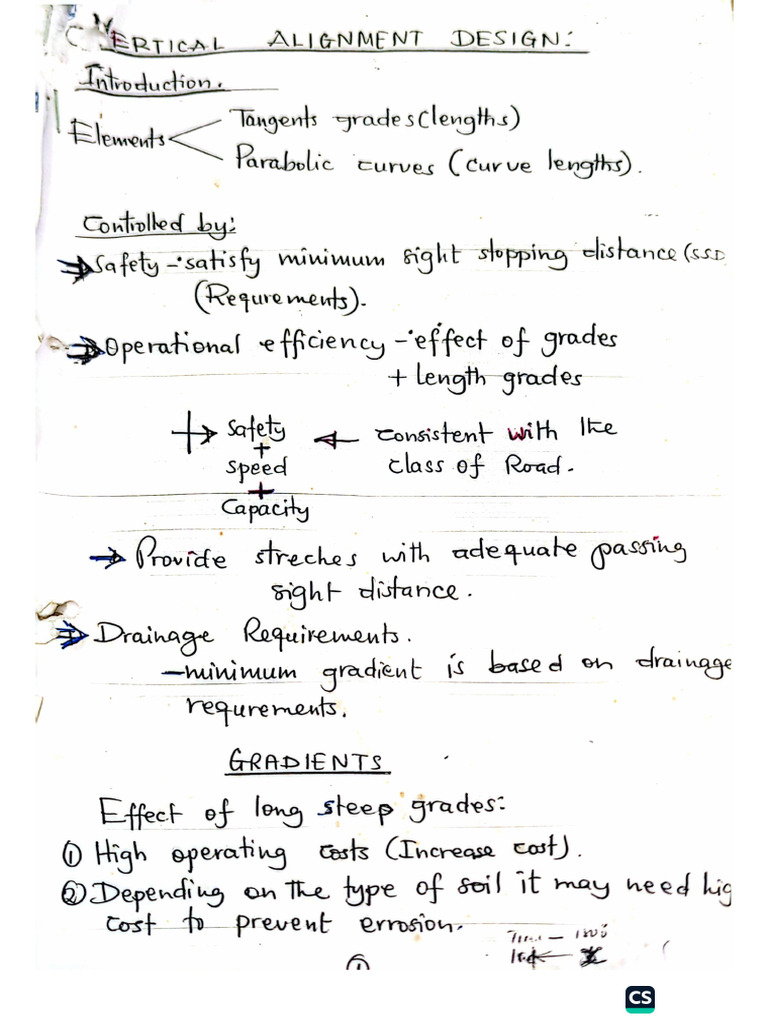 VERTICAL ALIGNMENT DESIGN:
Introduction.
Elements
Tangents grades(lengths)
Parabolic curves (curve lengths).
Controlled by:
Safety - satisfy minimum sight stopping distance (SSD
(Requrements).
Operational efficiency - effect of grades
+ length grades
Safety ← consistent with the
+
speed class of Road.
+
Capacity
→ Provide streches with adequate passing
sight distance.
Drainage Requirements.
- minimum gradient is based on drainage
requrements.
GRADIENTS
Effect of long steep grades:
① High operating costs (Increase cost).
② Depending on the type of soil it may need hig
cost to prevent errosion.
①
CS